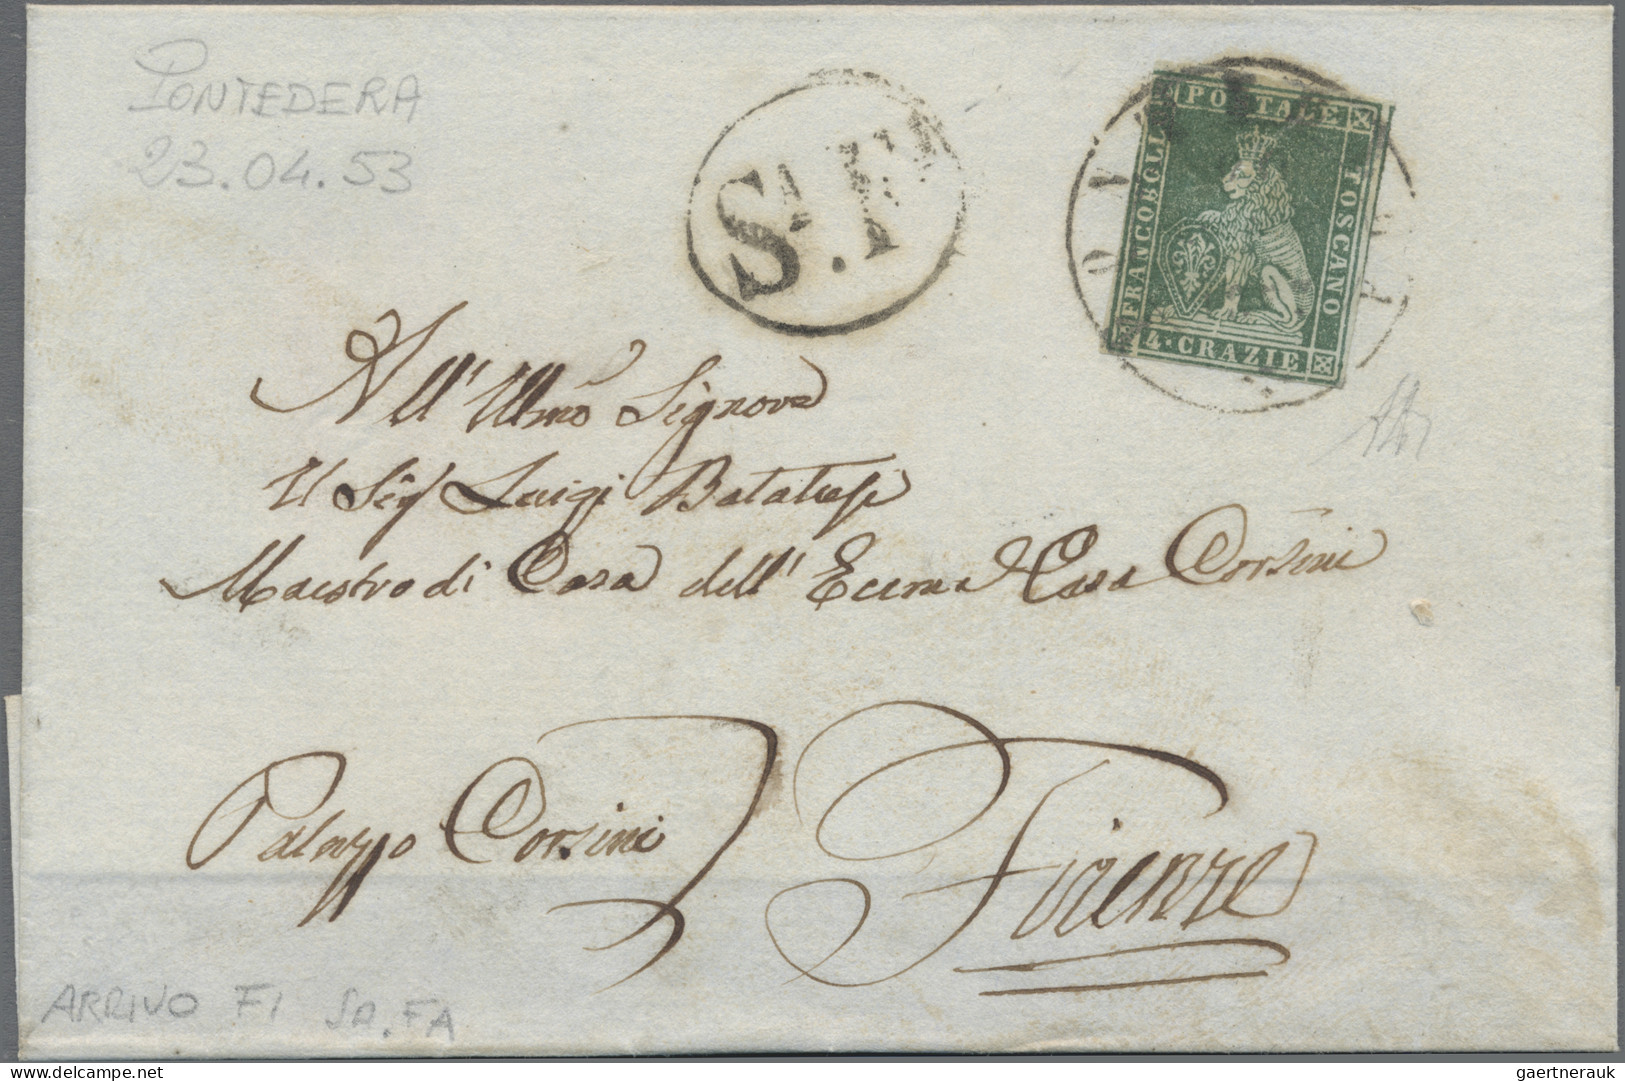 PONTEDERA
23.04.53
Sa. Fa
FRANCOBOLLO POSTALE TOSCANO
4. CRAZIE
All' Illmo Signore
Il Sig Luigi
Maestro di Casa dell' Eccma Casa Corsini
Palazzo Corsini
Firenze
ARRIVO FI SA.FA
gaertnerauk